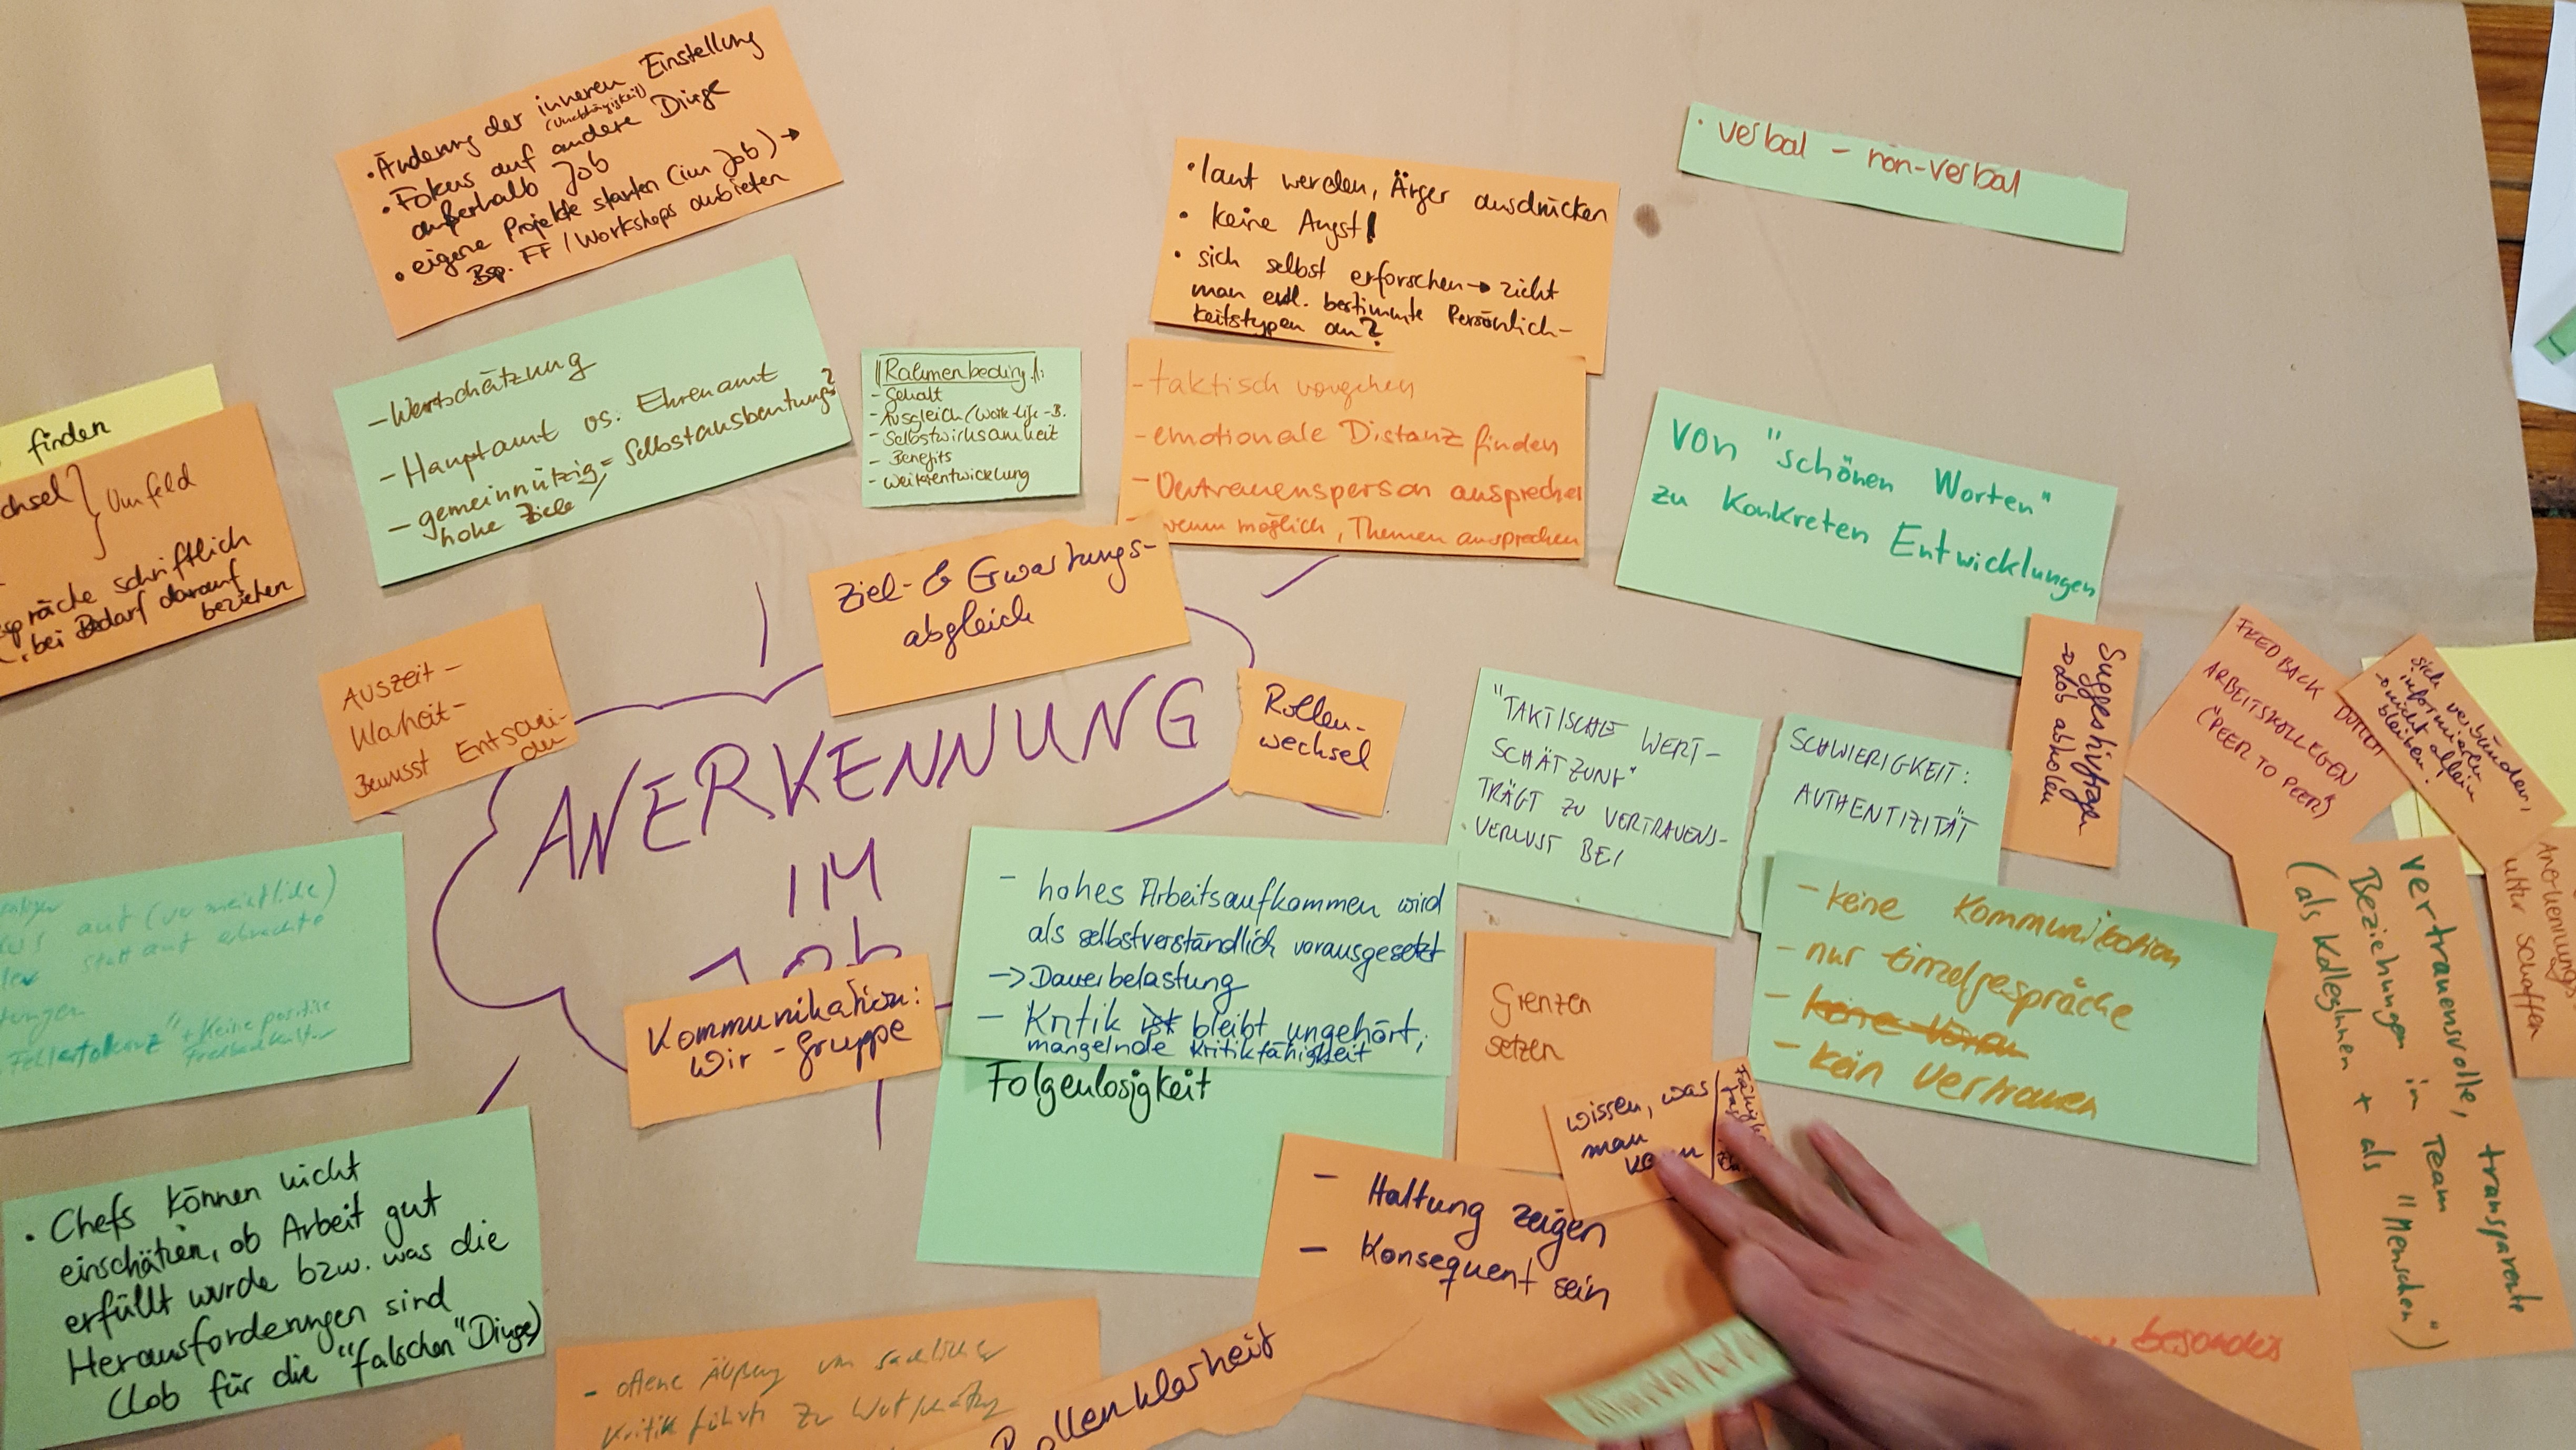 • Änderung der inneren Einstellung
(Unabhängigkeit)
• Fokus auf andere Dinge
außerhalb Job
• eigene Projekte starten (im Job) →
Bsp. FF / Workshops anbieten
• laut werden, Ärger ausdrücken
• keine Angst!
• sich selbst erforschen → zieht
man evtl. bestimmte Persönlich-
keitstypen an?
• verbal – non-verbal
- Wertschätzung
- Hauptamt vs. Ehrenamt
- gemeinnützig = Selbstausbeutung?
hohe Ziele
Rahmenbeding.:
- Gehalt
- Ausgleich/Work-Life-B.
- Selbstwirksamkeit
- Benefits
- Weiterentwicklung
- taktisch vorgehen
- emotionale Distanz finden
- Vertrauensperson ansprechen
- wenn möglich, Themen ansprechen
Von "schönen Worten"
zu konkreten Entwicklungen
finden
chsel } Umfeld
präche schriftlich
bei Bedarf darauf
beziehen
Ziel- & Erwartungs-
abgleich
Auszeit-
Klarheit-
Bewusst
ANERKENNUNG
IM
JOB
Rollen-
wechsel
"TAKTISCHE WERT-
SCHÄTZUNG"
TRÄGT ZU VERTRAUENS-
VERLUST BEI
SCHWIERIGKEIT:
AUTHENTIZITÄT
Suggestivfragen
→ Lob abholen
FEEDBACK DURCH
ARBEITSKOLLEGEN
("PEER TO PEER")
sich verbünden,
informieren
→ nicht allein
bleiben!
auf (vermeintliche)
statt auf erbrachte
Fehlertoleranz" + Keine positive
Feedbackkultur
- hohes Arbeitsaufkommen wird
als selbstverständlich vorausgesetzt
-> Dauerbelastung
- Kritik ist bleibt ungehört,
mangelnde Kritikfähigkeit
Folgenlosigkeit
- keine Kommunikation
- nur Einzelgespräche
- keine
- kein Vertrauen
vertrauensvolle, transparente
Beziehungen in Team
(als KollegInnen + als "Menschen")
Anerkennungs
schaffen
Kommunikation:
Wir-Gruppe
Grenzen
setzen
wissen, was
man kann
- Haltung zeigen
- Konsequent sein
• Chefs können nicht
einschätzen, ob Arbeit gut
erfüllt wurde bzw. was die
Herausforderungen sind
(Lob für die "falschen" Dinge)
- offene Äußerung von sachlicher
Kritik führt zu Wertschätzung
Rollenklarheit
besonders